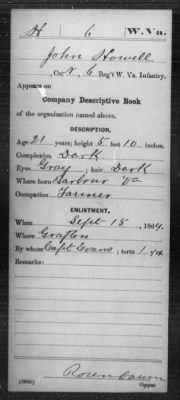 H 6 W. Va.
John Howell
Co. H, 6 Reg't W. Va. Infantry.
Appears on
Company Descriptive Book
of the organization named above.
DESCRIPTION.
Age 21 years; height 5 feet 10 inches.
Complexion Dark
Eyes Gray; hair Dark
Where born Barbour Va
Occupation Farmer
ENLISTMENT.
When Sept 15, 1864.
Where Grafton
By whom Capt Evans; term 1 y'rs.
Remarks:
Rosenbaum
Copyist.